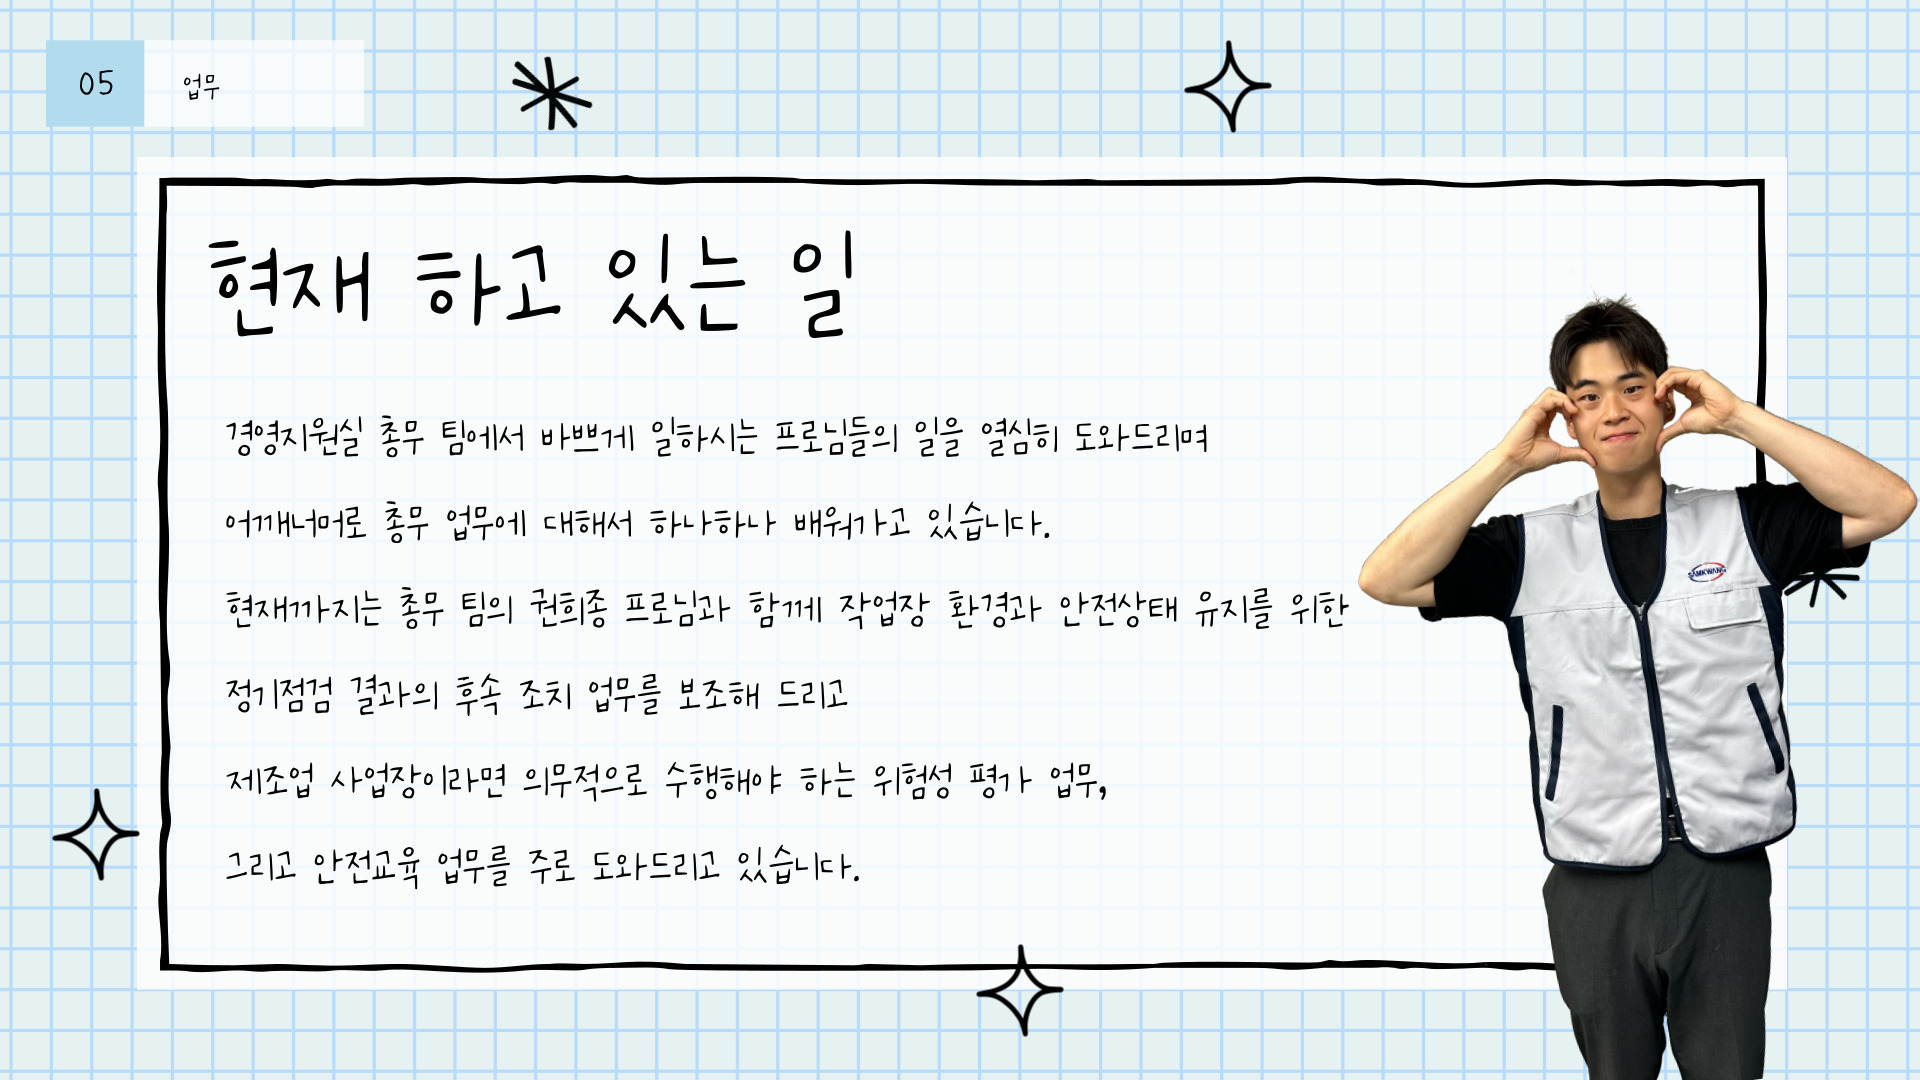 05
업무
현재 하고 있는 일
경영지원실 총무 팀에서 바쁘게 일하시는 프로님들의 일을 열심히 도와드리며
어깨너머로 총무 업무에 대해서 하나하나 배워가고 있습니다.
현재까지는 총무 팀의 권희종 프로님과 함께 작업장 환경과 안전상태 유지를 위한
정기점검 결과의 후속 조치 업무를 보조해 드리고
제조업 사업장이라면 의무적으로 수행해야 하는 위험성 평가 업무,
그리고 안전교육 업무를 주로 도와드리고 있습니다.
SAMKWANG